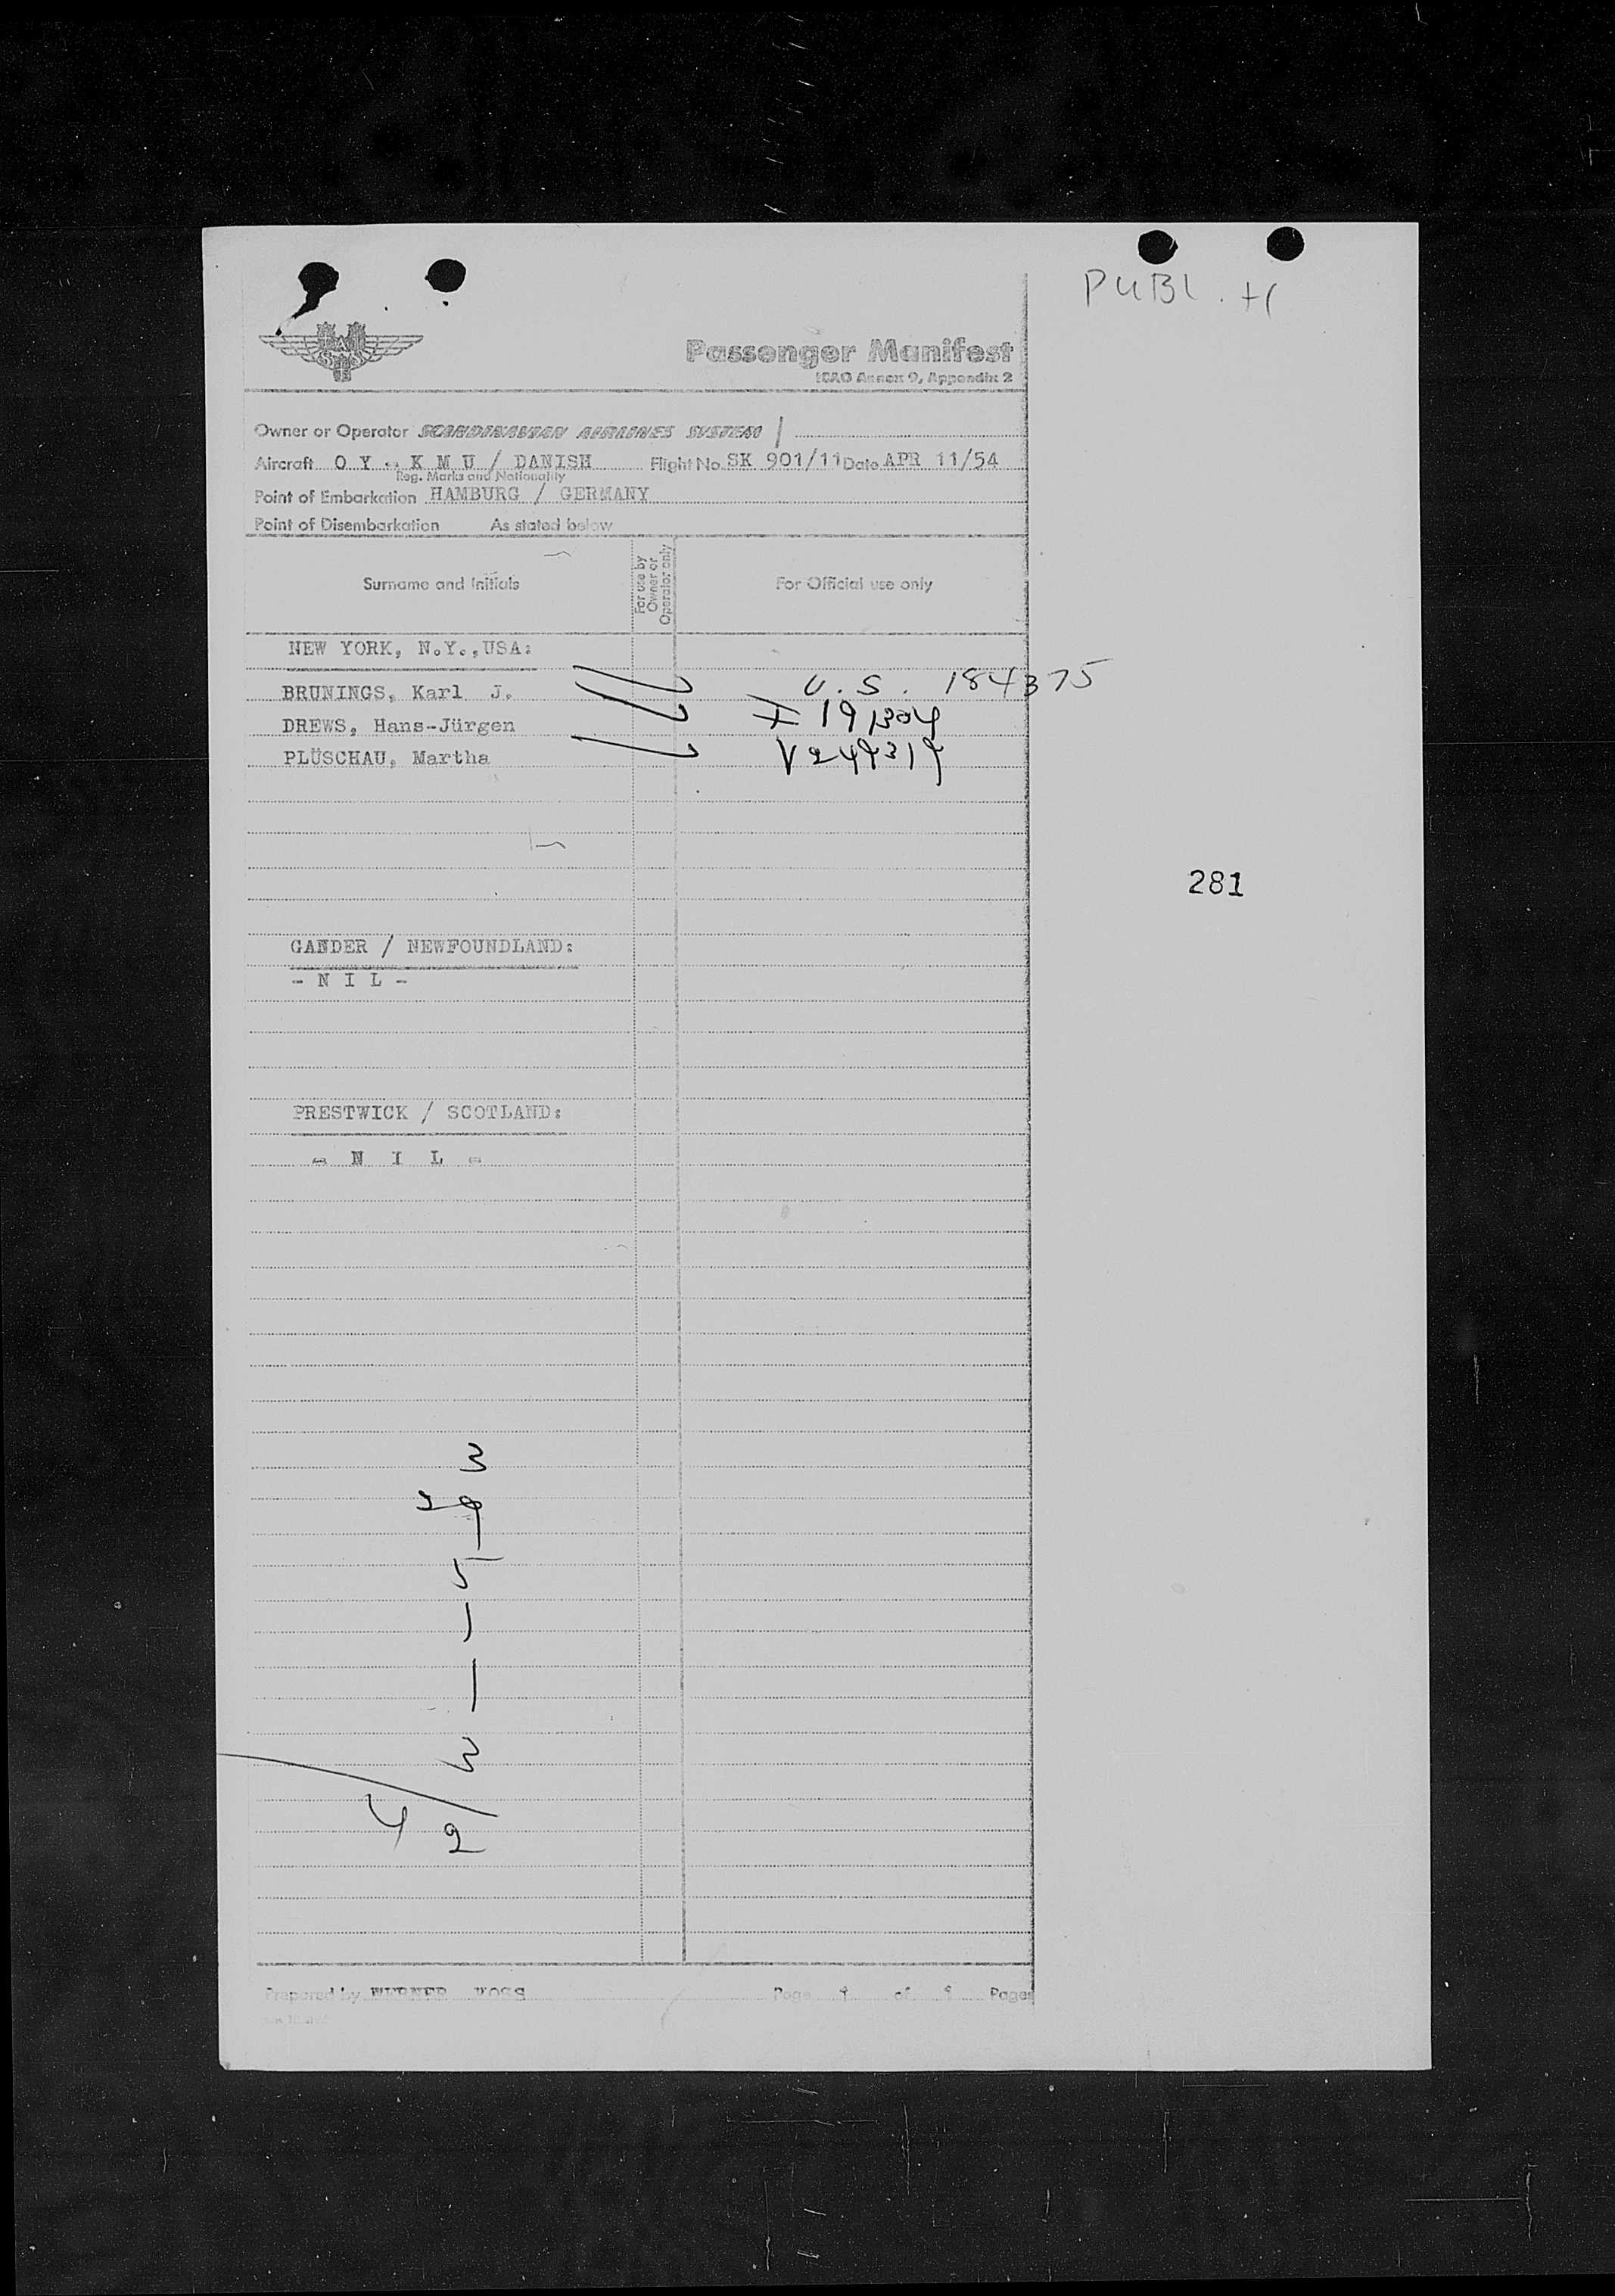 PUBL. H
SAS
Passenger Manifest
ICAO Annex 9, Appendix 2
Owner or Operator SCANDINAVIAN AIRLINES SYSTEM
Aircraft O Y - K M U / DANISH Flight No. SK 901/11 Date APR 11/54
Reg. Marks and Nationality
Point of Embarkation HAMBURG / GERMANY
Point of Disembarkation As stated below
Surname and Initials
For use by
Owner or
Operator only
For Official use only
NEW YORK, N.Y.,USA:
BRUNINGS, Karl J. U.S. 184375
DREWS, Hans-Jürgen I 191304
PLÜSCHAU, Martha V249319
281
GANDER / NEWFOUNDLAND:
- N I L -
PRESTWICK / SCOTLAND:
- N I L -
Prepared by WERNER VOSS Page 1 of 1 Pages